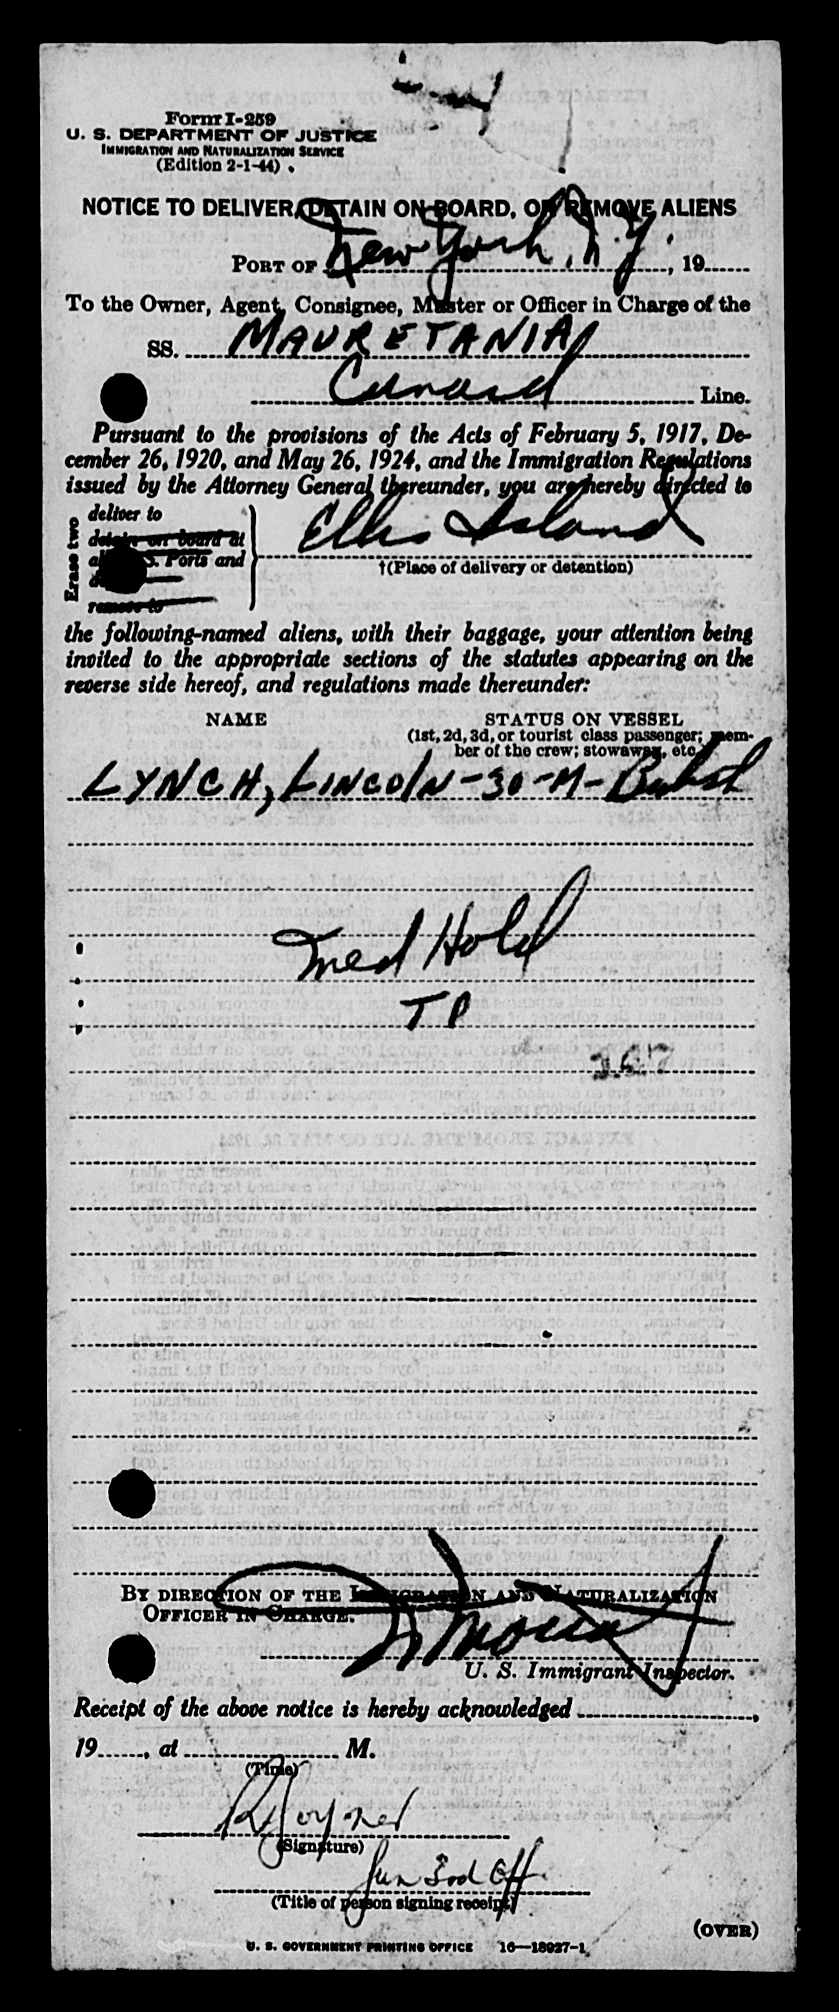 Form I-259
U. S. DEPARTMENT OF JUSTICE
IMMIGRATION AND NATURALIZATION SERVICE
(Edition 2-1-44)
NOTICE TO DELIVER, DETAIN ON BOARD, OR REMOVE ALIENS
PORT OF New York, N.Y. , 19
To the Owner, Agent, Consignee, Master or Officer in Charge of the
SS. MAURETANIA
Cunard Line.
Pursuant to the provisions of the Acts of February 5, 1917, De-
cember 26, 1920, and May 26, 1924, and the Immigration Regulations
issued by the Attorney General thereunder, you are hereby directed to
Erase two
deliver to
detain on board at
S. Ports and
remove to
Ellis Island
†(Place of delivery or detention)
the following-named aliens, with their baggage, your attention being
invited to the appropriate sections of the statutes appearing on the
reverse side hereof, and regulations made thereunder:
NAME STATUS ON VESSEL
(1st, 2d, 3d, or tourist class passenger; mem-
ber of the crew; stowaway, etc.)
LYNCH, LINCOLN - 30 - M -
Med Hold
TP
BY DIRECTION OF THE IMMIGRATION AND NATURALIZATION
OFFICER IN CHARGE.
U. S. Immigrant Inspector.
Receipt of the above notice is hereby acknowledged ,
19 , at M.
(Time)
(Signature)
Jun 3rd Off.
(Title of person signing receipt)
(OVER)
U. S. GOVERNMENT PRINTING OFFICE 16—18927-1